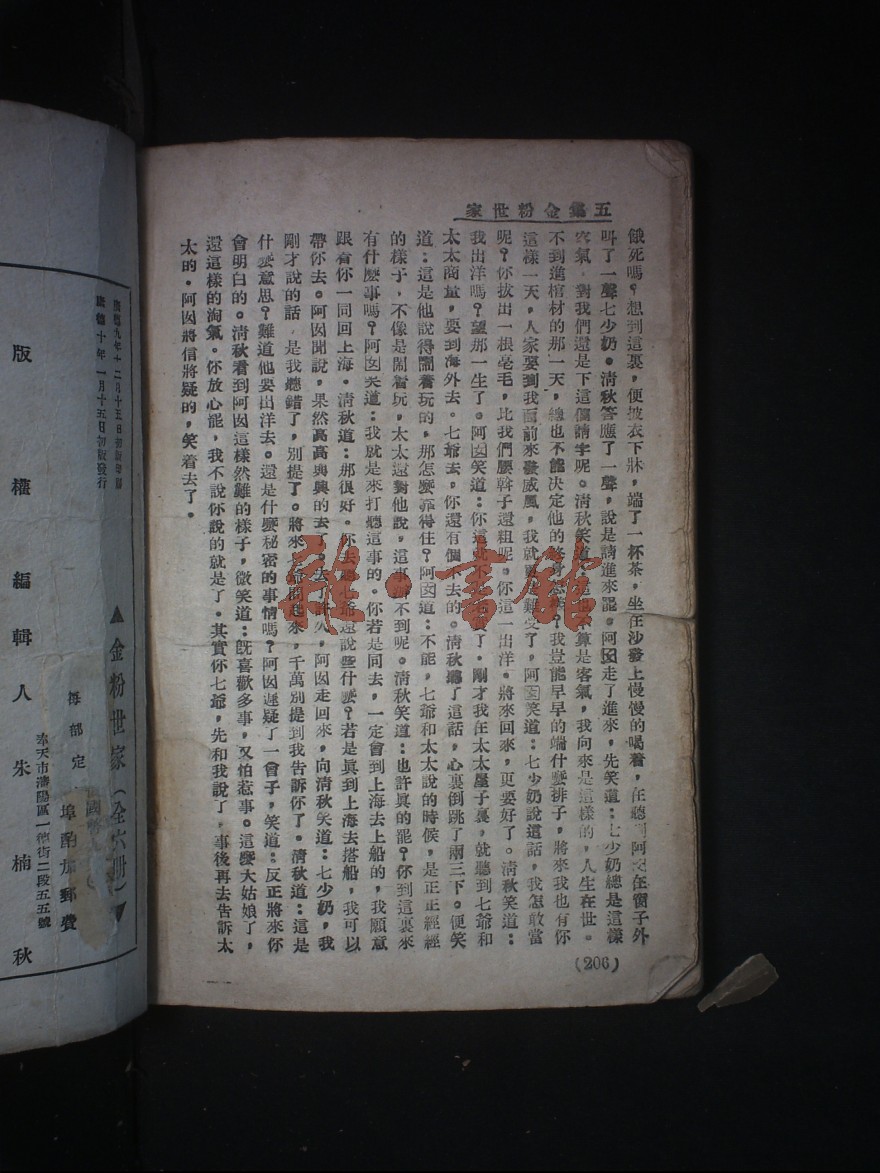 五集金粉世家
餓死嗎？想到這裏，便披衣下牀，端了一杯茶，坐在沙發上慢慢的喝着，在聽阿囡在窗子外
叫了一聲七少奶。清秋答應了一聲，說是請進來罷。阿囡走了進來，先笑道：七少奶總是這樣
客氣，對我們還是下這個請字呢。清秋笑道：這也不算是客氣，我向來是這樣的，人生在世。
不到進棺材的那一天，總也不能決定他的終身怎樣？我豈能早早的端什麼排子，將來我也有你
這樣一天，人家要到我面前來發威風，我就難受了，阿囡笑道：七少奶說這話，我怎敢當
呢？你拔出一根毫毛，比我們腰幹子還粗呢。你這一出洋。將來回來，更要好了。清秋笑道：
我出洋嗎？望那一生了。阿囡笑道：你這就不了。剛才我在太太屋子裏，就聽到七爺和
太太商量，要到海外去。七爺去，你還有個不去的。清秋聽了這話，心裏倒跳了兩三下。便笑
道：這是他說得鬧着玩的，那怎麼靠得住？阿囡道：不能，七爺和太太說的時候，是正正經經
的樣子，不像是鬧着玩，太太還對他說，這事辦不到呢。清秋笑道：也許真的罷？你到這裏來
有什麼事嗎？阿囡笑道：我就是來打聽這事的。你若是同去，一定會到上海去上船的，我願意
跟着你一同回上海。清秋道：那很好。你去七爺還說些什麼？若是真到上海去搭船，我可以
帶你去。阿囡聞說，果然高高興興的去了。去許久，阿囡走回來，向清秋笑道：七少奶，我
剛才說的話，是我聽錯了，別提了。將來七爺問起來，千萬別提到我告訴你了。清秋道：這是
什麼意思？難道他要出洋去。還是什麼秘密的事情嗎？阿囡遲疑了一會子，笑道：反正將來你
會明白的。清秋看到阿囡這樣然難的樣子，微笑道：旣喜歡多事，又怕惹事。這麼大姑娘了，
還這樣的淘氣。你放心罷，我不說你說的就是了。其實你七爺，先和我說了，事後再去告訴太
太的。阿囡將信將疑的，笑着去了。
(206)
雅·書館
康德九年十二月十五日初版印刷
康德十年一月十五日初版發行
▲金粉世家(全六册)▼
每部定
國幣
埠酌加郵費
奉天市瀋陽區一德街二段五五號
版權編輯人朱楠秋